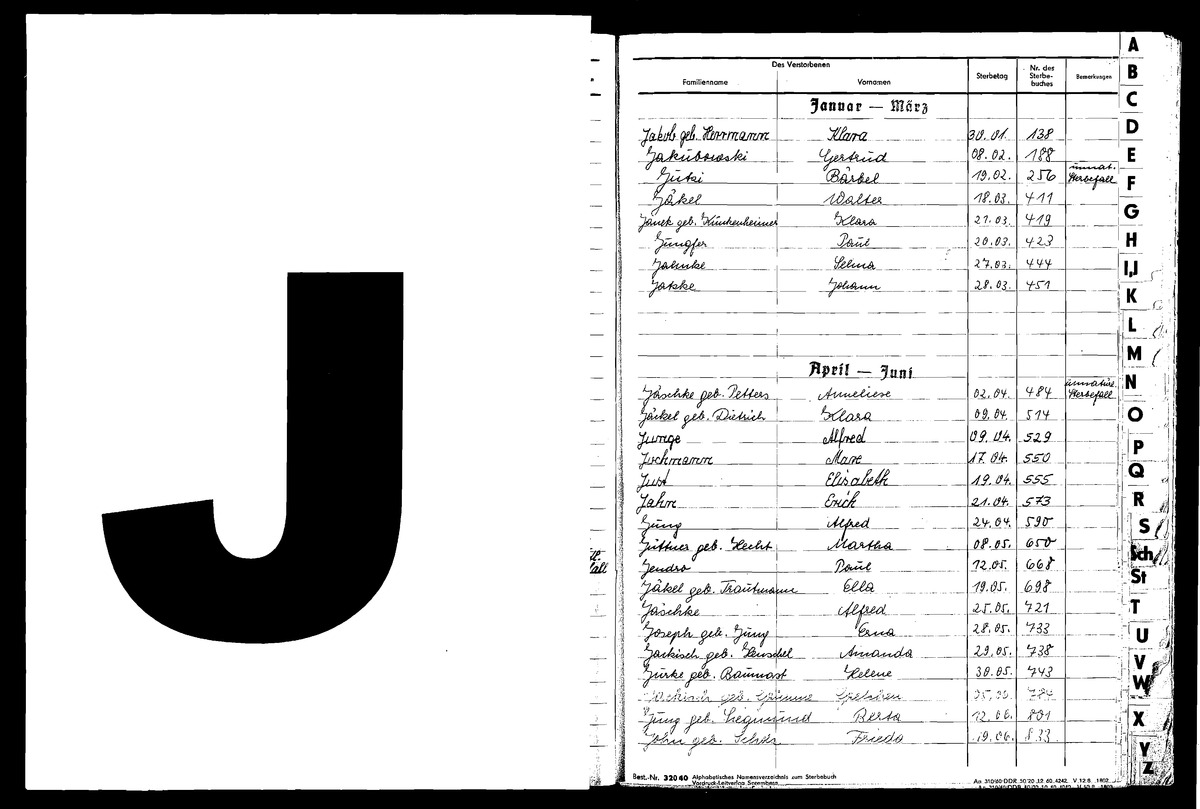 J
Des Verstorbenen
Familienname Vornamen Sterbetag Nr. des Sterbe-buches Bemerkungen
Januar — März
Jakob geb. Herrmann Klara 30.01. 138
Jakubowski Gertrud 08.02. 188
Jutzi Bärbel 19.02. 256 unnat. Sterbefall
Jäkel Walter 18.03. 411
Janek geb. Klara 21.03. 419
Jungfer Paul 20.03. 423
Jahnke Selma 27.03. 444
Jatzke Johann 28.03. 451
April — Juni
Jäschke geb. Petters Anneliese 02.04. 484 unnatürl. Sterbefall
Jäckel geb. Dietrich Klara 09.04. 514
Junge Alfred 09.04. 529
Jochmann Marie 17.04. 550
Just Elisabeth 19.04. 555
Jahn Erich 21.04. 573
Jung Alfred 24.04. 590
Jüttner geb. Hecht Martha 08.05. 650
Jendro Paul 12.05. 668
Jäkel geb. Trautmann Ella 19.05. 698
Jäschke Alfred 25.05. 721
Joseph geb. Jung Erna 28.05. 733
Jackisch geb. Henschel Amanda 29.05. 738
Jurke geb. Baumast Helene 30.05. 743
Jackisch geb. Gretchen 784
Jung geb. Siegmund Berta 12.06. 801
John geb. Scholz Frieda 19.06. 833
Best.-Nr. 32040 Alphabetisches Namensverzeichnis zum Sterbebuch
Vordruck-Leitverlag Spremberg
A
B
C
D
E
F
G
H
I,J
K
L
M
N
O
P
Q
R
S
Sch
St
T
U
V
W
X
Y
Z